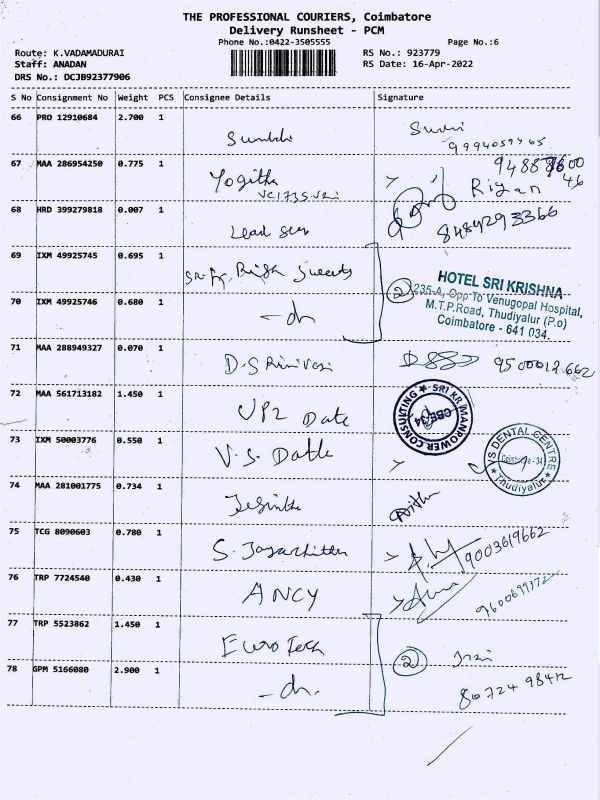 THE PROFESSIONAL COURIERS, Coimbatore
Delivery Runsheet - PCM
Phone No.:0422-3505555
Page No.:6
Route: K.VADAMADURAI
RS No.: 923779
Staff: ANADAN
RS Date: 16-Apr-2022
DRS No.: DCJB92377906
S No Consignment No Weight PCS Consignee Details Signature
66 PRO 12910684 2.700 1
67 MAA 286954250 0.775 1 Yogitha
Riyan
68 HRD 399279818 0.007 1 Lead
8484293366
69 IXM 49925745 0.695 1 Sweets
2 HOTEL SRI KRISHNA
235-A, Opp To Venugopal Hospital,
M.T.P.Road, Thudiyalur (P.o)
Coimbatore - 641 034.
70 IXM 49925746 0.680 1 -do-
71 MAA 288949327 0.070 1 D. Srinivas
9500012662
72 MAA 561713182 1.450 1
SRI KR MANPOWER CONSULTING
CBE-34
73 IXM 50003776 0.550 1 V.S.
VS DENTAL CENTRE
Coimbatore - 34
Thudiyalur
74 MAA 281001775 0.734 1
75 TCG 8090603 0.780 1 S.
9003619662
76 TRP 7724540 0.430 1 ANCY
77 TRP 5523862 1.450 1 Euro Tech
2
78 GPM 5166080 2.900 1 -do-
80724 98412